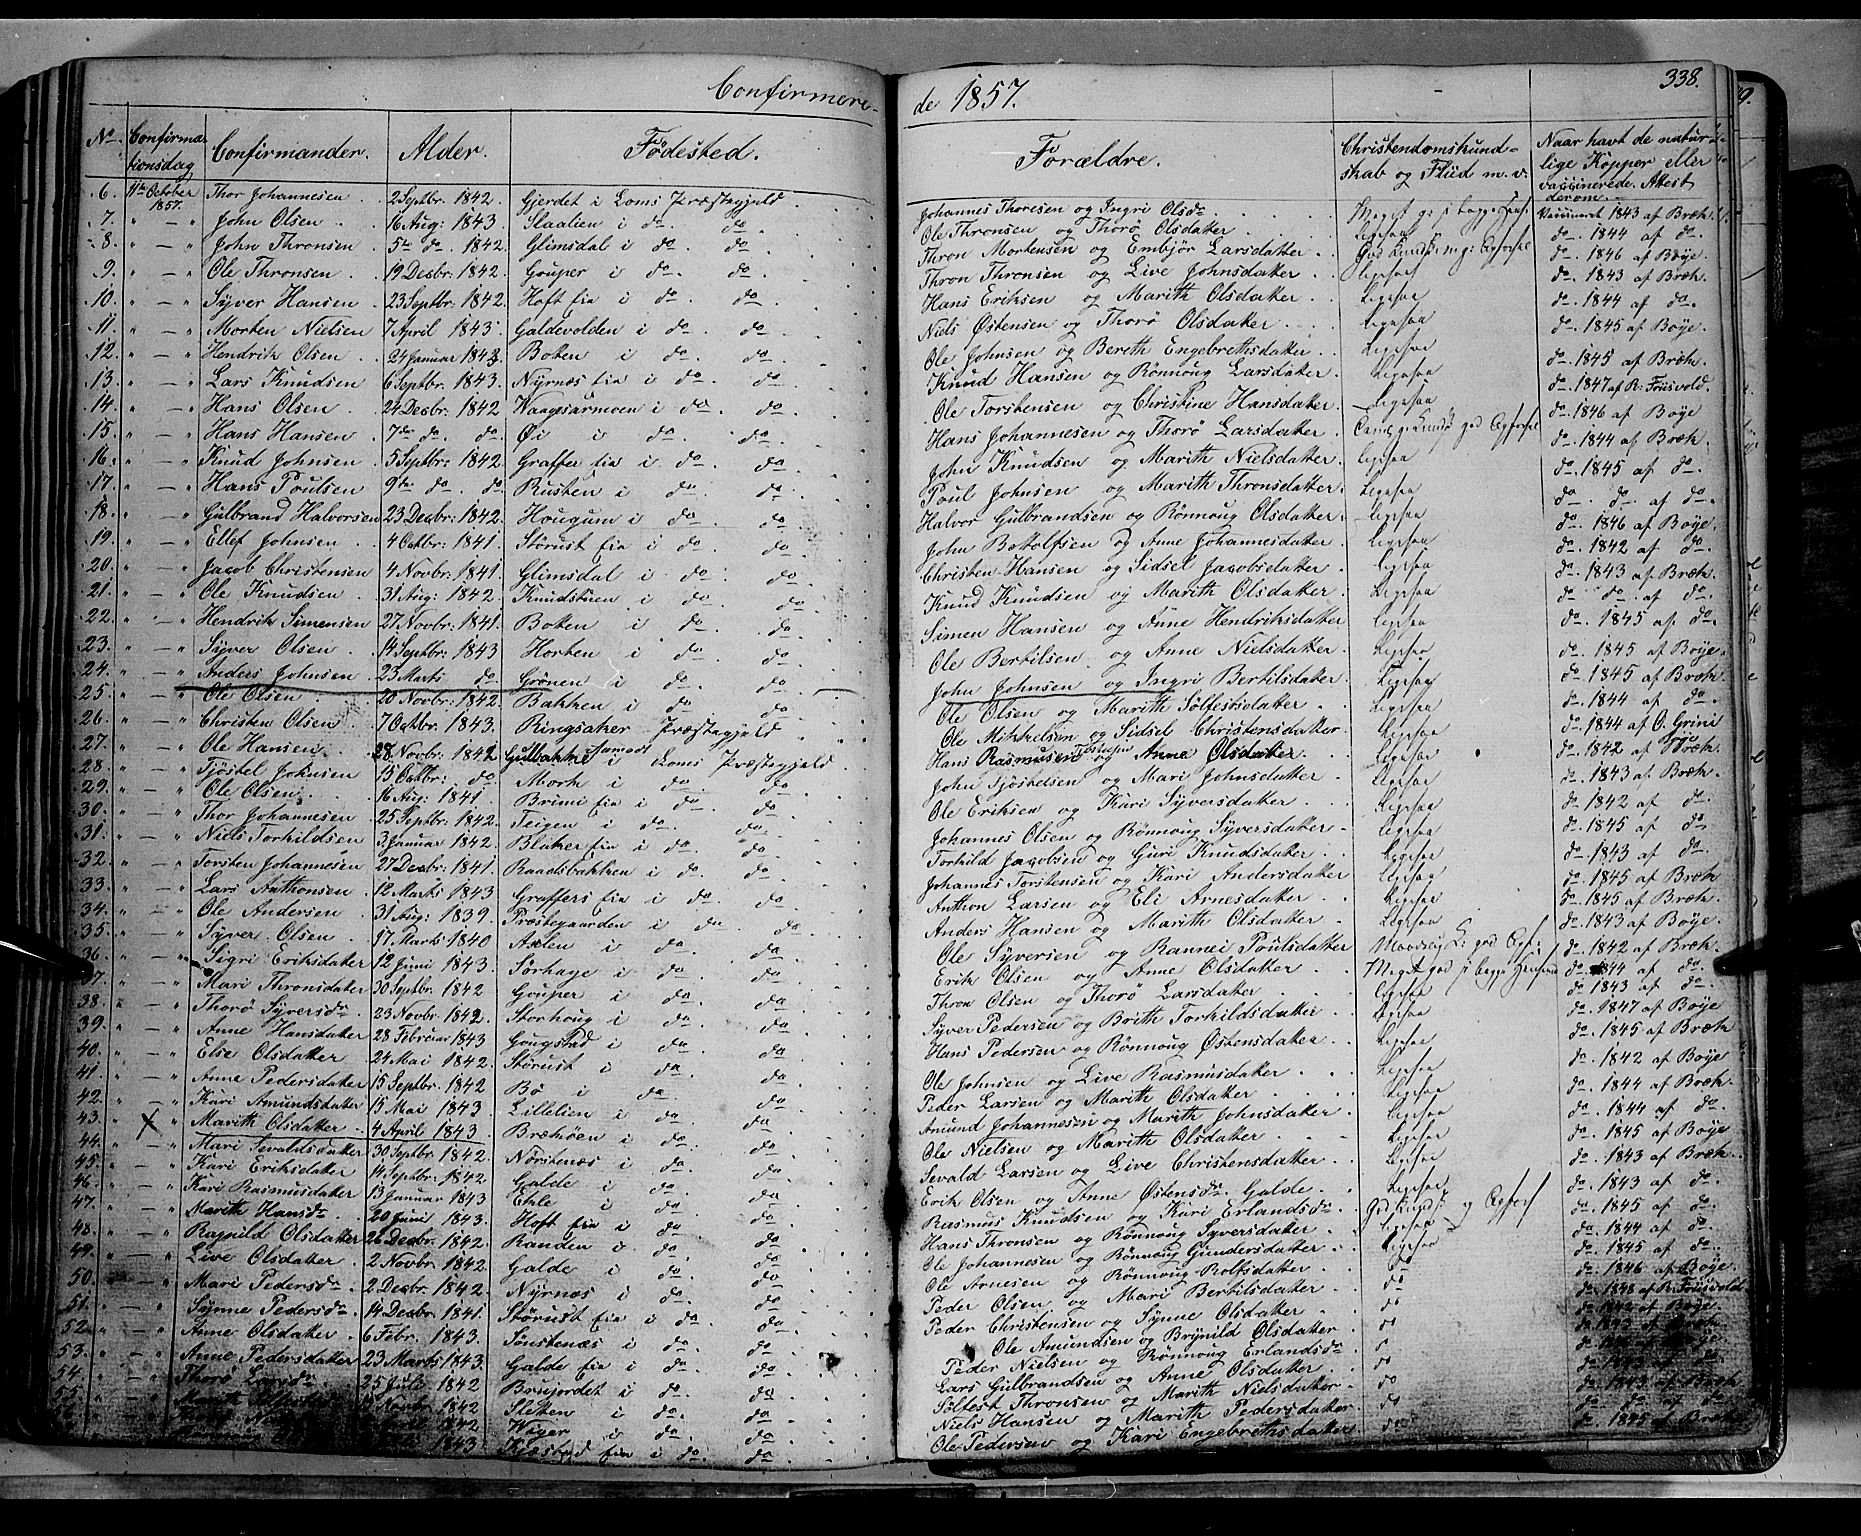 Confirmere-de 1857.
338.
No. Confirmationsdag Confirmander. Alder. Fødested. Forældre. Christendomskundskab og Flid m. v. Naar havt de naturlige Kopper eller vaccinerede. Attest derom.
6. 11te October 1857. Thor Johannesen 2 Septbr. 1842. Gjerdet i Loms Præstegjeld Johannes Thoresen og Ingri Olsdr Meget g: i begge Vaccineret 1843 af Bræk.
7. " — " John Olsen 16 Aug: 1843 Slaalien i do do Ole Thronsen og Thorø Olsdatter ligesaa do 1844 af do
8. " — " John Thronsen 5te do. 1842. Glimsdal i do do Thron Mortensen og Embjør Larsdatter do 1846 af Boye.
9. " — " Ole Thronsen 19 Decbr: 1842. Gouper i do do Thron Thronsen og Live Johnsdatter ligesaa do 1843 af Bræk.
10. " — " Syver Hansen 23 Septbr: 1842. Hoft eia i do do Hans Eriksen og Marith Olsdatter ligesaa do 1844 af do
11. " — " Morten Nielsen 7 April 1843. Galdevolden i do do Niels Østensen og Thorø Olsdatter ligesaa do 1845 af Boye.
12. " — " Hendrik Olsen 24 Januar 1843. Boten i do do Ole Johnsen og Berith Engebrethsdatter ligesaa do 1845 af Bræk.
13. " — " Lars Knudsen 6 Septbr. 1843. Nyrnæs eia i do do Knud Hansen og Rønnoug Larsdatter ligesaa do 1847 af R: Friisvold.
14. " — " Hans Olsen 24 Decbr: 1842 Waagsarmoen i do do Ole Torstensen og Christine Hansdatter. ligesaa do 1846 af Boye
15. " — " Hans Hansen 7de do. do Øi i do do Hans Johannesen og Thorø Larsdatter do 1844 af Bræk.
16. " — " Knud Johnsen 5 Septbr: 1842. Graffer eia i do do John Knudsen og Marith Nielsdatter. ligesaa do 1845 af do
17. " — " Hans Poulsen 9de do. do Rusten i do do Poul Johnsen og Marith Thronsdatter. ligesaa do do af do
18. " — " Gulbrand Halvorsen 23 Decbr: 1842. Hougum i do do Halvor Gulbrandsen og Rønnoug Olsdatter. ligesaa do 1846 af Boye.
19. " — " Ellef Johnsen 4 Octbr: 1841. Størust eia i do do John Botolfsen og Anne Johannesdatter ligesaa do 1842 af do
20. " — " Jacob Christensen 4 Novbr: 1841. Glimsdal i do do Christen Hansen og Sidsel Jacobsdatter ligesaa do 1843 af Bræk.
21. " — " Ole Knudsen 31 Aug: 1842. Knudstuen i do do Knud Knudsen og Marith Olsdatter ligesaa do do af do
22. " — " Hendrik Simensen 27 Novbr: 1841. Boten i do do Simen Hansen og Anne Hendriksdatter ligesaa do 1845 af do
23. " — " Syver Olsen 14 Septbr: 1843 Horten i do do Ole Bertilsen og Anne Nielsdatter ligesaa do 1845 af Boye.
24. " — " Anders Johnsen 23 Marts do Grønen i do do John Johnsen og Ingri Bertilsdatter ligesaa do 1845 af Bræk
25. " — " Ole Olsen 20 Novbr: 1842. Bakken i do do Ole Olsen og Marith Solfestsdatter ligesaa do 1844 af do
26. " — " Christen Olsen 7 Octbr. 1843. Ringsaker Præstegjeld Ole Mikkelsen og Sidsel Christensdatter ligesaa do 1844 af O. Grini
27. " — " Ole Hansen 28 Novbr: 1842 Gulbakkne i Loms Præstegjeld Hans Rasmusen og Anne Olsdatter ligesaa do 1842 af Boye
28. " — " Tjøstel Johnsen 15 Octbr: do Mork i do do John Tjøstelsen og Mari Johnsdatter ligesaa do 1843 af Bræk.
29. " — " Ole Olsen 16 Aug: 1841. Brimi eia i do do Ole Eriksen og Kari Syversdatter ligesaa do 1842 af do
30. " — " Thor Johannesen 25 Septbr: 1842. Teigen i do do Johannes Olsen og Rønnoug Syversdatter ligesaa do 1845 af do
31. " — " Niels Torkildsen 3 Januar 1842. Bluker eia i do do Torkild Jacobsen og Guri Knudsdatter ligesaa do 1843 af do
32. " — " Torsten Johannesen 27 Decbr: 1841. Raadsbakken i do do Johannes Torstensen og Kari Andersdatter ligesaa do 1845 af Bræk.
33. " — " Lars Anthonsen 12 Marts 1843 Graffers eia i do do Anthon Larsen og Eli Arnesdatter ligesaa do 1845 af Bræk.
34. " — " Ole Andersen 31 Aug: 1839. Prøstegaarden i do do Anders Hansen og Marith Olsdatter ligesaa do 1843 af Boye.
35. " — " Syver Olsen 17 Marts 1840 i do do Ole Syversen og Rannei Poulsdatter do 1842 af Bræk.
36. " — " Sigri Eriksdatter 12 Juni 1843. Sørhage i do do Erik Olsen og Anne Olsdatter do 1844 af do
37. " — " Mari Thronsdatter 30 Septbr: 1842 Gouper i do do Thron Olsen og Thorø Larsdatter ligesaa do 1843 af do
38. " — " Thorø Syversdr 23 Novbr. 1842. Storhoug i do do Syver Pedersen og Brith Torkildsdatter ligesaa do 1847 af Boye
39. " — " Anne Hansdatter 28 Februar 1843 Gougstad i do do Hans Pedersen og Rønnoug Østensdatter ligesaa do 1845 af Bræk.
40. " — " Else Olsdatter 24 Mai 1842. Størust i do do Ole Johnsen og Live Rasmusdatter ligesaa do 1842 af Boye
41. " — " Anne Pedersdatter 15 Septbr. 1842 Bø i do do Peder Larsen og Marith Olsdatter ligesaa do 1844 af Bræk
42. " — " Kari Amundsdatter 15 Mai 1843. Lillelien i do do Amund Johannesen og Marith Johnsdatter ligesaa do 1844 af do
43. " X " Marith Olsdatter 4 April 1843 Bræhøen i do do Ole Nielsen og Marith Olsdatter ligesaa do 1845 af Boye
44. " — " Mari Sevaldsdatter 30 Septbr. 1842. Nørstenæs i do do Sevald Larsen og Live Christensdatter ligesaa do 1843 af Bræk.
45. " — " Kari Eriksdatter 14 Septbr: 1842. Galde i do do Erik Olsen og Anne Østensdr Galde ligesaa do 1843 af do
46. " — " Kari Rasmusdatter 13 Januar 1843 i do do Rasmus Knudsen og Kari Erlandsdr do 1845 af do
47. " — " Marith Hansdr 20 Juni 1843. Hoft eia i do do Hans Thronsen og Rønnoug Syversdatter ligesaa do 1844 af do
48. " — " Ragnild Olsdatter 26 Decbr. 1842. Randen i do do Ole Johannesen og Rønnoug Gundersdatter ligesaa do 1845 af do
49. " — " Live Olsdatter 2 Novbr. 1842. Galde i do do Ole Arnesen og Rønnoug Rolfsdatter do do 1846 af Boye
50. " — " Mari Pedersdr 2 Decbr. 1842 Nyrnæs i do do Peder Olsen og Mari Bertilsdatter do do 1848 af R: Friisvold
51. " — " Synne Pedersdr 14 Decbr. 1841. Størust eia i do do Peder Christensen og Synne Olsdatter do af Boye
52. " — " Anne Olsdatter 6 Febr. 1843. Sønstenæs i do do Ole Amundsen og Brynild Olsdatter do do 1843 af Bræk.
53. " — " Anne Pedersdatter 23 Marts 1843. Galde eia i do do Peder Nielsen og Rønnoug Erlandsdr do
54. " — " Thorø Larsdr 25 Juli 1842 Brujordet i do do Lars Gulbrandsen og Anne Olsdatter do do 1843 af do
55. Novbr 1842 Sletten i do do Solfest Thronsen og Marith Nielsdatter do 1843 af Bræk
1842 Wiger i do do Niels Hansen og Marith Pedersdatter do
1843 eia i do do Ole Pedersen og Kari Engebrethsdatter do do 1845 af Bræk